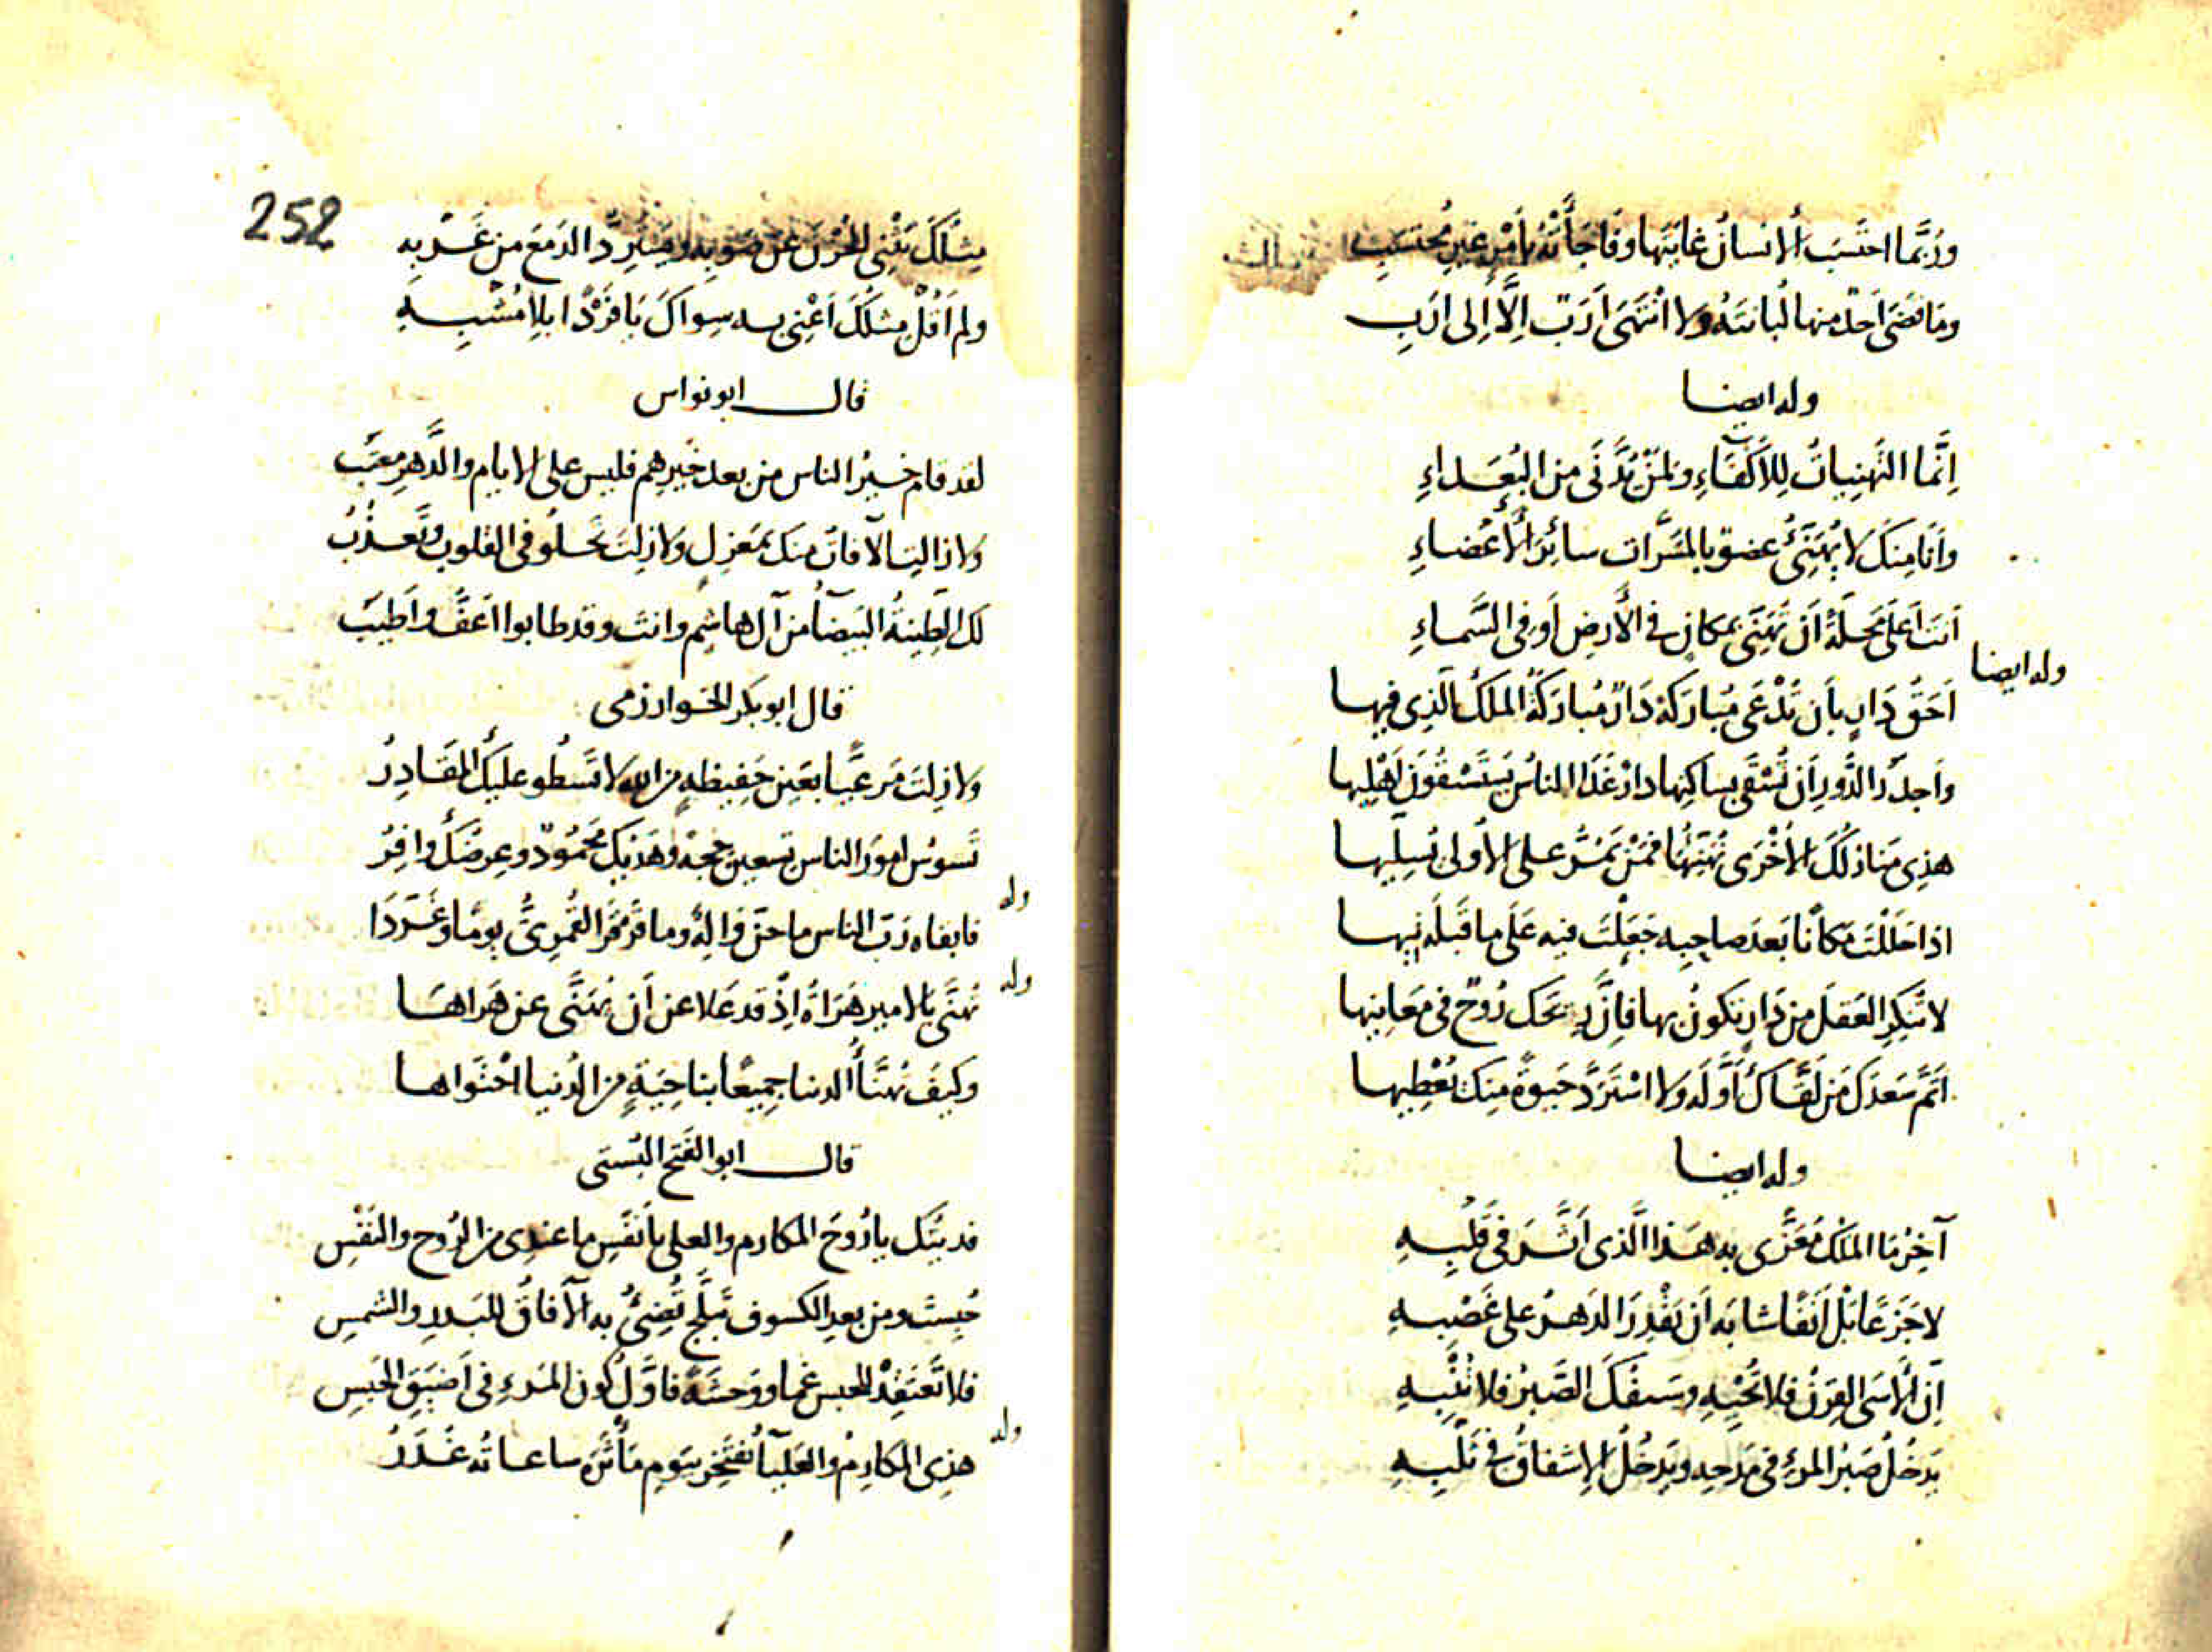 وَرُبَّمَا احتَسَبَ الانسانُ غايَتَها وفَاجَأَتْهُ بأَمْرٍ غيرِ مُحتَسَبِ
ومَا قَضَى أَحدٌ منها لُبانَتَهُ ولا انْتَهَى أَرَبٌ اِلَّا اِلى اَرَبِ
وله ايضا
اِنَّما التَّهنِياتُ لِلاَكْفَاءِ ولمَنْ يَدَّنَى من البُعَداءِ
وأَنَا مِنكَ لا يُهَنِّئُ عضوٌ بالمَسَرَّات سائِرَ الأَعْضاءِ
اَنتَ اَعلَى مَحلَّةً اَن تُهَنَّى بمكانٍ في الأَرضِ أَو فى السَّماءِ
وله ايضا
اَحَقُّ دَارٍ بأَن تُدْعَى مُبارَكَةً دَارٌ مُبارَكَةُ المَلكِ الَّذِى فيها
وأَجدَرُ الدُّورِ أَن تُسْقَى بساكِنِها دارٌ غَدَا الناسُ يَستَسْقُونَ أَهْلِيها
هذِى مَنازلُكَ الأُخْرَى نُهَنِّئُها فمَنْ يَمُرُّ على الأُولى يُسلِّيها
اذا حَلَلْتَ مكانًا بَعدَ صاحِبِه جَعَلْتَ فيه عَلَى ما قَبلَه تِيها
لا تُنكِرِ العَقلَ من دَارٍ تكونُ بها فاِنَّ رِيحَكَ رُوحٌ فى مَغانِيها
اَتَمَّ سَعدَكَ مَن لَقَّاكَ أَوَّلَه ولا اسْتَرَدَّ حَيوةً مِنكَ مُعْطِيها
وله ايضا
آخِرُ مَا المَلْكُ مُعَزَّى به هَذا الَّذى أَثَّرَ فى قَلْبِهِ
لا جَزَعًا بَلْ أَنَفًا شابَه أَن يَقْدِرَ الدَهرُ على غَصْبِهِ
اِنَّ الأَسَى القِرْنُ فلا تُحْيِهِ وسَيفُكَ الصَّبرُ فلا تُنْبِهِ
يَدخُلُ صَبرُ المرءِ فى مَدحِه ويَدخُلُ الاِشفاقُ فى ثَلْبِهِ
252
مِثلُكَ يَثْنِى الحُزْنَ عَن صَوبِه ويَستَرِدُّ الدَمعَ من غَرْبِه
ولم أَقُلْ مثلُكَ أَعْنِى به سِواكَ يَا فَرْدًا بلا مُشْبِهِ
قال ابو نواس
لقد قام خيرُ الناس من بعد خَيرِهم فليس على الايام والدَّهرِ معتَبُ
ولا زالتِ الآفاتُ منك بمَعزِلٍ ولا زِلتَ تَحلُو فى القلوب وتَعذُبُ
لك الطِينةُ البَيضآءُ من آل هاشِمٍ وانتَ وقد طابوا أَعَفُّ وأَطيَبُ
قال ابو بكر الخوارزمى
ولا زِلتَ مَرعِيًّا بعَينِ حَفِيظةٍ من الله لا تَسْطُو عليكَ المَقَادِرُ
تَسوسُ أمورَ الناس تسعين حجةً وهَديُكَ مَحْمُودٌ وعِرضُكَ وافِرُ
وله
فابقاه رَبُّ الناس ما حنّ والِهٌ وما قَرْقَرَ القُمْرِىُّ يومًا وغَرَّدَا
وله
تُهَنَّى بالامير هَرَاةُ اِذْ قد عَلا عن أَن يُهَنَّى عن هَراهَا
وكَيفَ نُهَنِّأُ الدنيا جميعًا بناحِيَةٍ من الدُنيا احْتَواها
قال ابو الفَتح البُستى
فديتُك يا رُوحَ المكارم والعلى بأَنفَسِ ما عندى من الرُوح والنَفْسِ
حُبِستَ ومن بعدِ الكسوف تَبلُّجٌ تُضِئُ به الآفاقُ للبَدرِ والشمسِ
فلا تَعتَقِدْ للحبس غمّا ووَحشَةً فاوَّلُ كون المَرءِ فى أَضيَقِ الحَبسِ
وله
هذِى المكارِمُ والعَليآءُ تفتَخِر بيَومِ مَأْثَرَةٍ ساعاتُه غُدَرُ